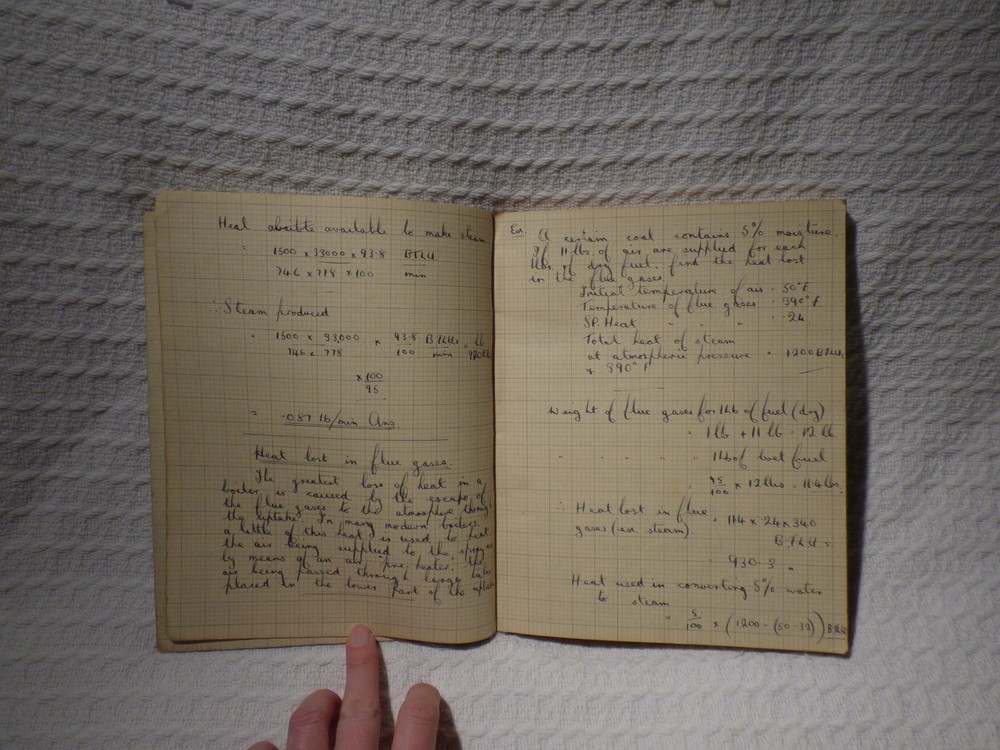 Heat available to make steam
= 1500 x 33000 x 93.8 BThU
746 x 778 x 100 min
∴ Steam produced
= 1500 x 33,000 x 93.8 BThU = lb
746 x 778 100 min
x 100
95
= .087 lb/min Ans.
Heat lost in flue gases.
The greatest loss of heat in a
boiler is caused by the escape of
the flue gases to the atmosphere through
the uptake. In many modern boilers
a little of this heat is used to heat
the air being supplied to the
by means of an air pre heater, the
air being passed through large tubes
placed in the lower part of the uptake
Ex. A certain coal contains 5% moisture.
If 11 lbs. of air are supplied for each
lb. of dry fuel, find the heat lost
in the flue gases.
Initial temperature of air = 50°F
Temperature of flue gases = 390°F
SP. Heat " " " = .24
Total heat of steam
at atmospheric pressure = 1200 BThU.
& 390°F
Weight of flue gases for 1 lb of fuel (dry)
= 1 lb + 11 lb = 12 lb
" " " " " 1 lb of wet fuel
= 95/100 x 12 lbs = 11.4 lbs.
∴ Heat lost in flue
gases (exc. steam) = 11.4 x .24 x 340
BThU =
930.3 "
Heat used in converting 5% water
to steam
= 5/100 x (1200 - (50 - 32)) BThU